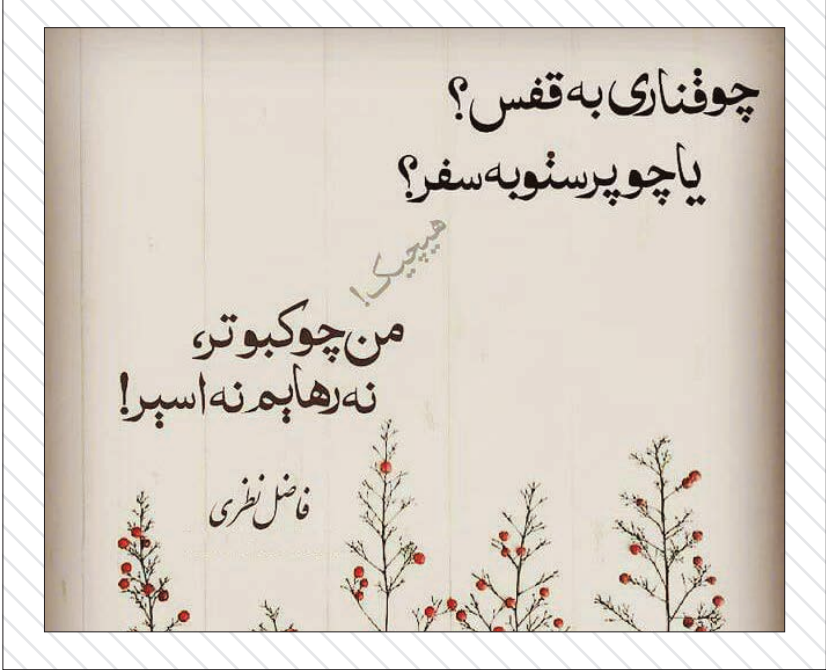 چو قناری به قفس؟
یا چو پرستو به سفر؟
هیچیک!
من چو کبوتر،
نه رهایم نه اسیر!
فاضل نظری